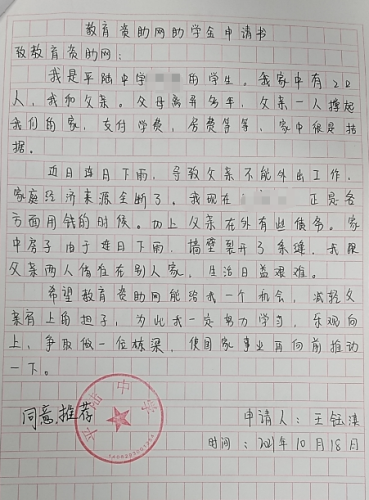 教育资助网助学金申请书
致教育资助网:
我是平陆中学 的学生。我家中有2口
人,我和父亲。父母离异多年,父亲一人撑起
我们的家,支付学费,房费等等,家中很是拮
据。
近日连日下雨,导致父亲不能外出工作,
家庭经济来源全断了。我现在 正是各
方面用钱的时候。加上父亲在外有些债务。家
中房子由于连日下雨,墙壁裂开了条缝,我跟
父亲两人借住在别人家,生活日益艰难。
希望教育资助网能给我一个机会,减轻父
亲肩上的担子,为此我一定努力学习,乐观向
上,争取做一位栋梁,使国家事业再向前推动
一下。
同意推荐
平陆中学
申请人:王钰淇
时间:2021年10月18日